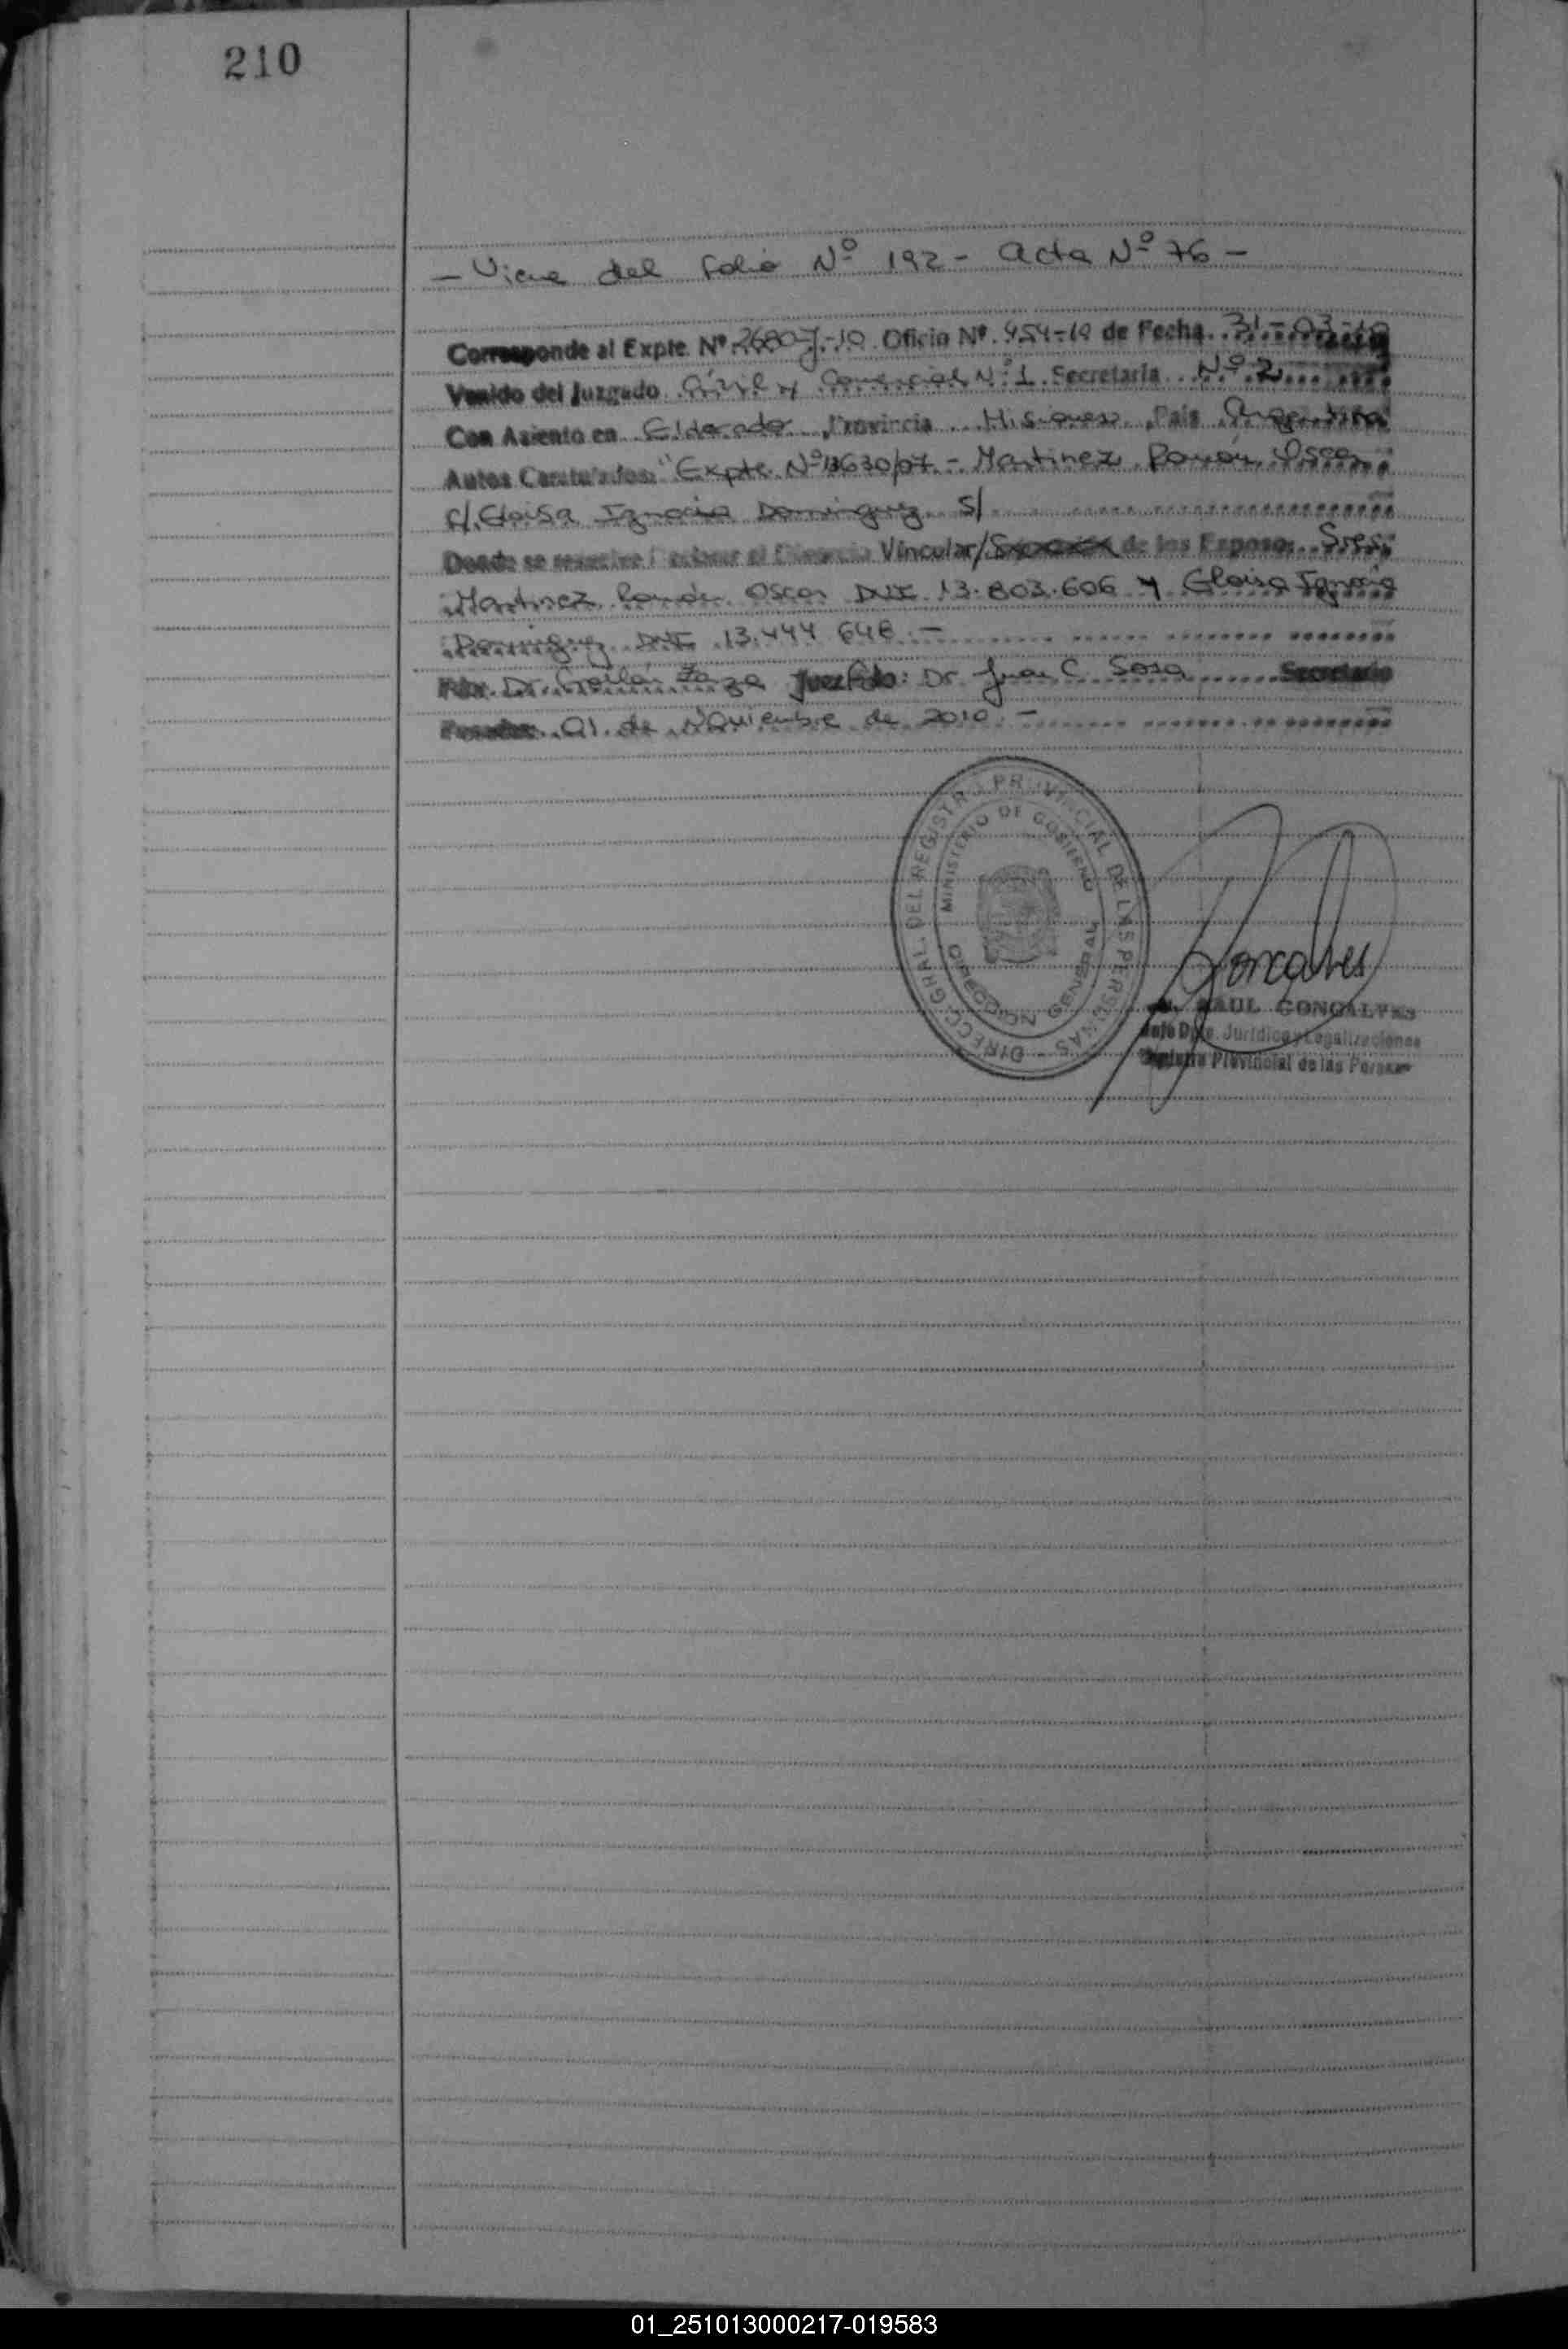 210
- Viene del folio Nº 192 - Acta Nº 76 -
Corresponde al Expte. Nº 2680-J-10 Oficio Nº 454-10 de Fecha 31-03-10
Venido del Juzgado Civil y Comercial Nº 1 Secretaria Nº 2
Con Asiento en Eldorado, Provincia Misiones, País Argentina
Autos Caratulados: "Expte. Nº 13630/07 - Martinez Ramón Oscar
c/ Eloisa Ignacia Dominguez s/
Donde se resuelve Declarar el Divorcio Vincular/ de los Esposos Sres.
Martinez Ramón Oscar DNI 13.803.606 y Eloisa Ignacia
Dominguez DNI 13.444.648 -
Dr. Juez Fdo: Dr. Juan C. Sosa Secretario
Posadas 01 de Noviembre de 2010 -
DIRECC. GRAL. DEL REGISTRO PROVINCIAL DE LAS PERSONAS
MINISTERIO DE GOBIERNO
DIRECCION GENERAL
Goncalves
RAUL GONCALVES
Jefe Dpto. Jurídico y Legalizaciones
Registro Provincial de las Personas
01_251013000217-019583